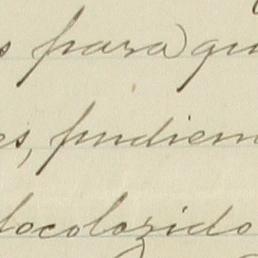 s para qu
es, pudiem
locolozido